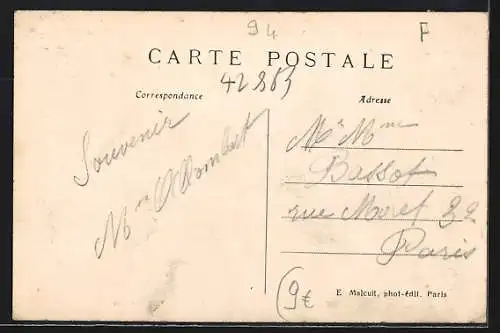 94
F
CARTE POSTALE
42863
Correspondance
Adresse
Souvenir
Mme
Mr Mme
Bassot
rue Moret 22
Paris
9€
E Malcuit, phot-édit. Paris